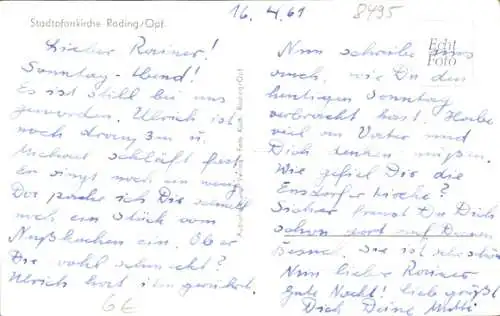 Stadtpfarrkirche Roding/Opf.
16. 4. 61
8495
Echt
Foto
Lieber Rainer!
Sonntag-Abend!
Es ist still bei uns
geworden. Ulrich ist
noch draußen u.
Michael schläft fest.
Er singt noch ein wenig.
Da packe ich Dir schnell
noch ein Stück vom
Nußkuchen ein. Ob er
Dir wohl schmeckt?
Ulrich hat ihn gerührt.
Nun schreibe uns
auch, wie Du den
heutigen Sonntag
verbracht hast. Habe
viel an Vater und
Dich denken müssen.
Wie gefiel Dir die
Ensdorfer Kirche?
Sicher freust Du Dich
schon dort auf Deinen
Besuch. Sie ist sehr schön
Nun lieber Rainer
Gute Nacht! Lieb grüßt
Dich Deine Mutti
6€